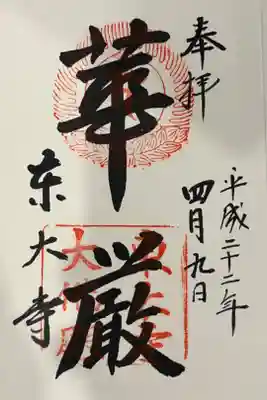 奉拝
平成二十二年
四月九日
華厳
东大寺